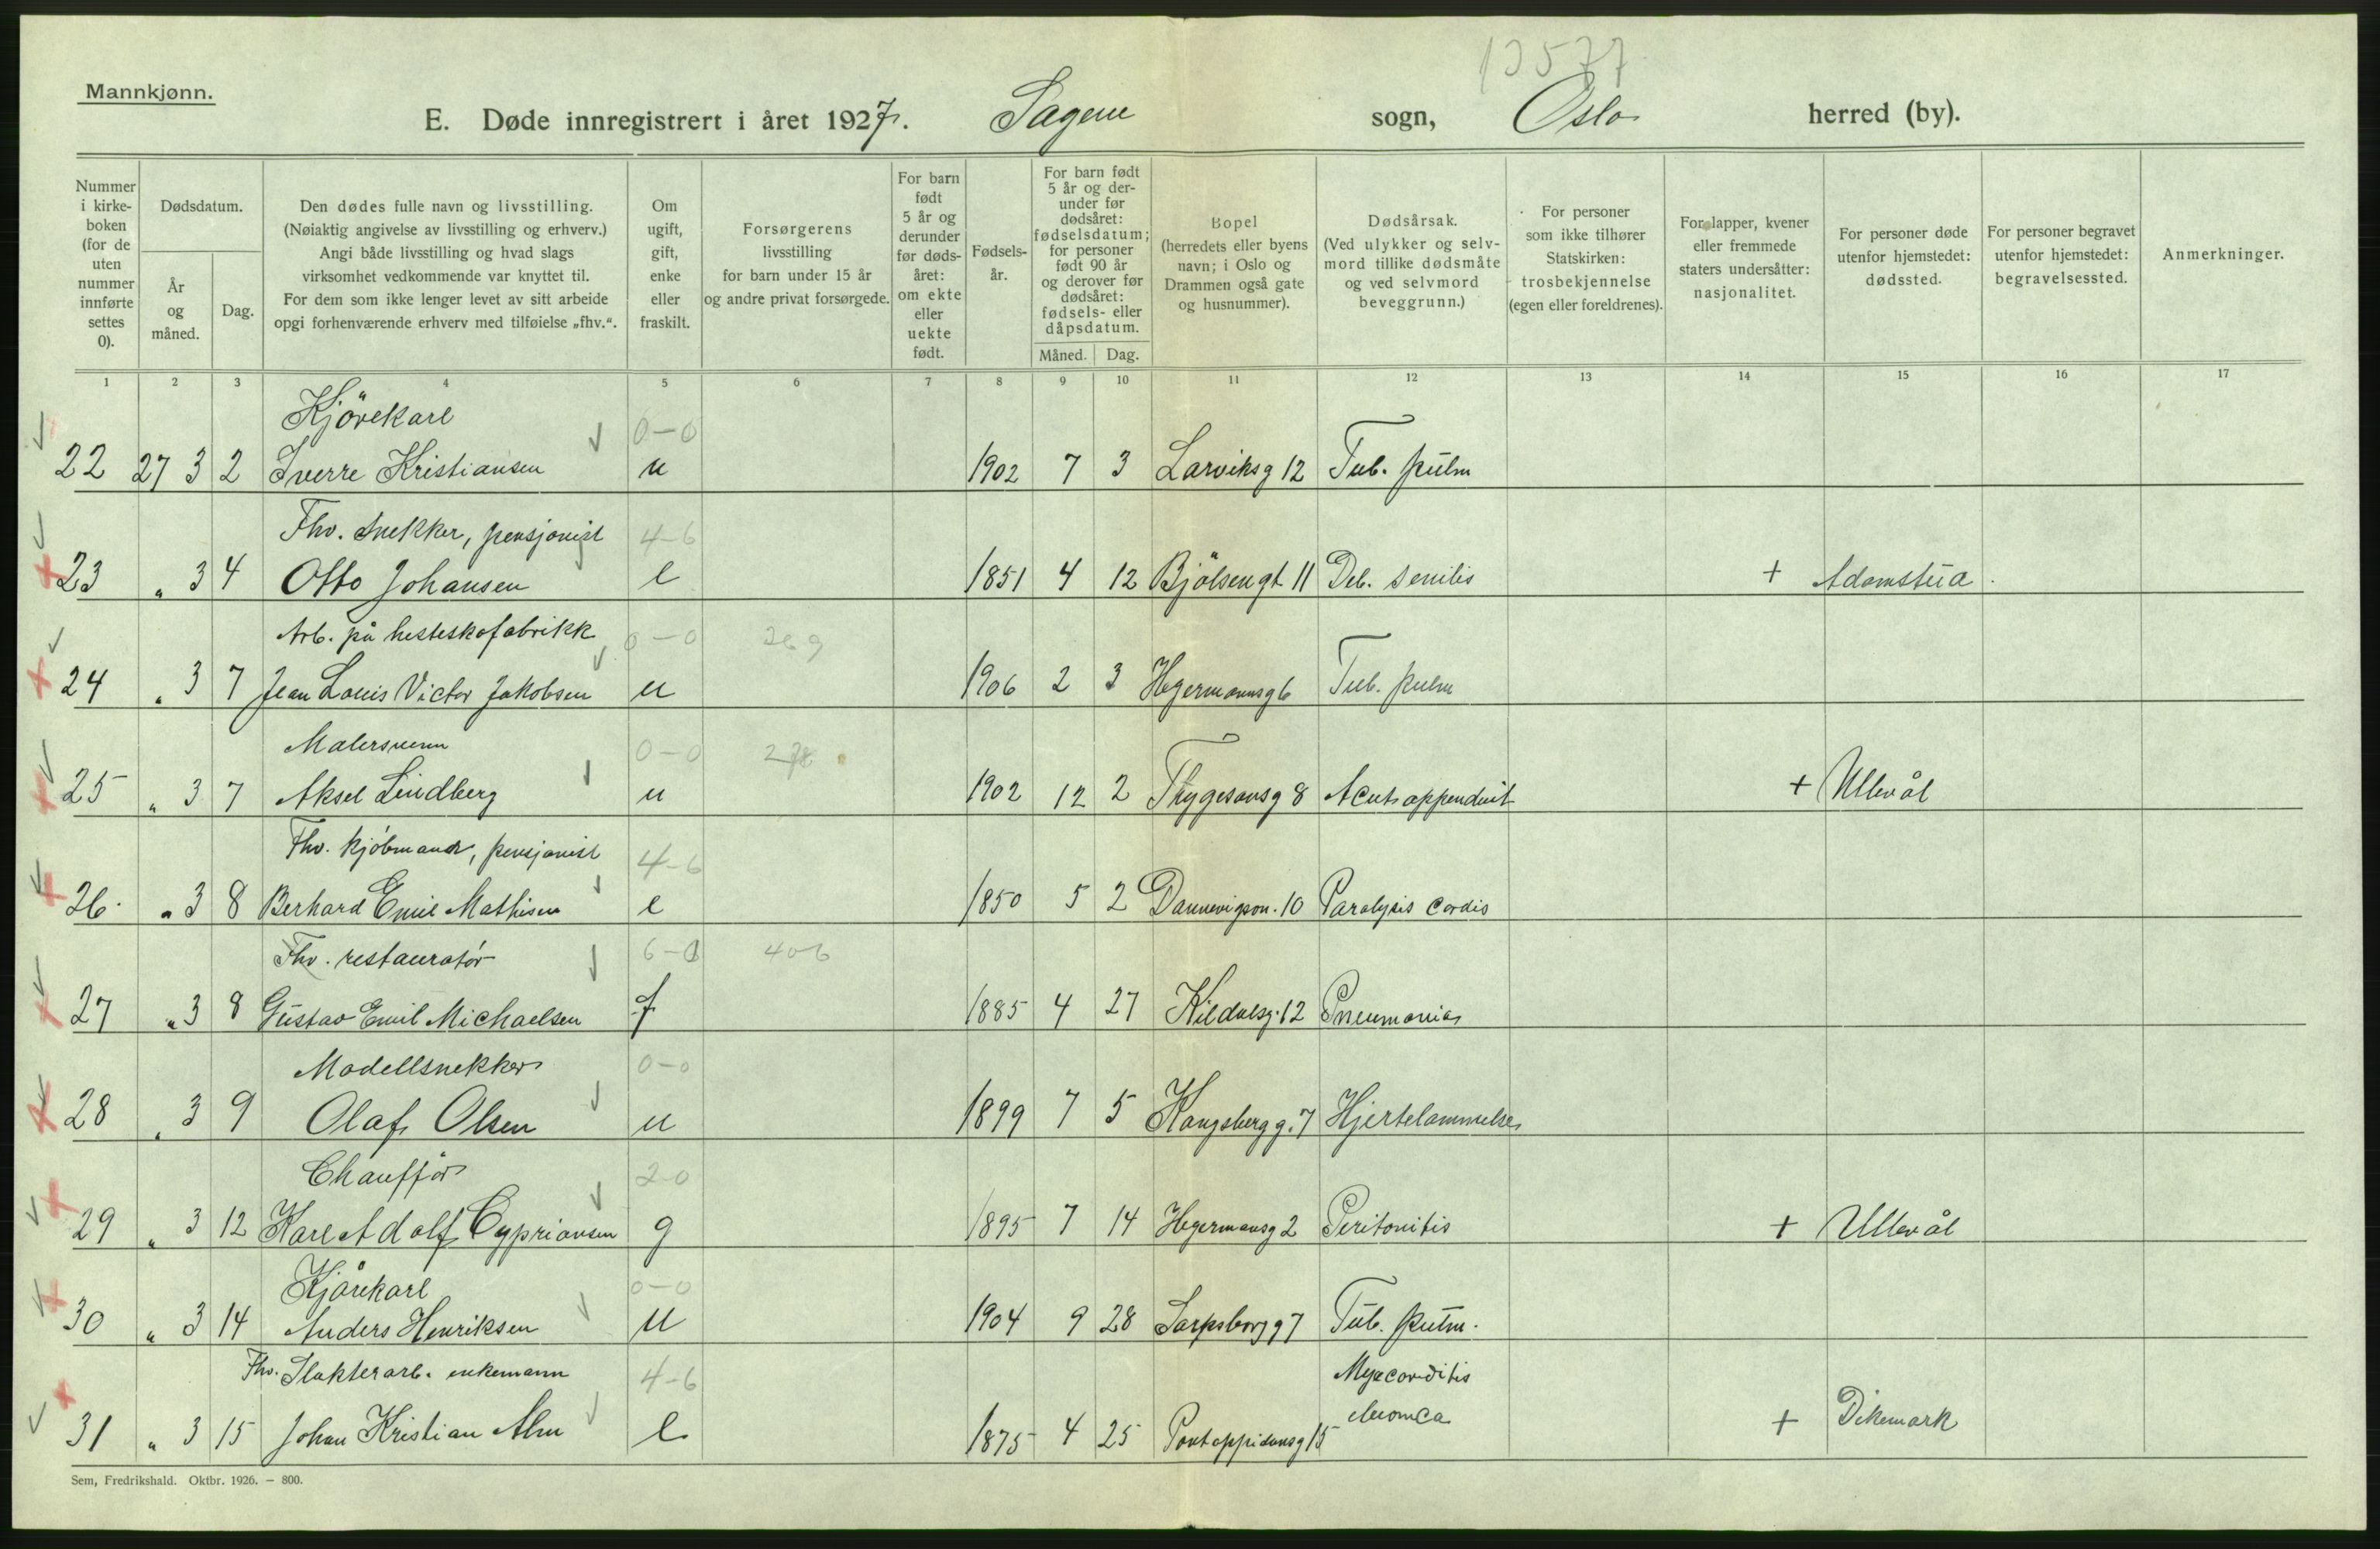 13577
Mannkjønn.
E. Døde innregistrert i året 1927. Sagene sogn, Oslo herred (by).
Nummer i kirke-boken (for de uten nummer innførte settes 0).
Dødsdatum.
År og måned.
Dag.
Den dødes fulle navn og livsstilling.
(Nøiaktig angivelse av livsstilling og erhverv.)
Angi både livsstilling og hvad slags
virksomhet vedkommende var knyttet til.
For dem som ikke lenger levet av sitt arbeide
opgi forhenværende erhverv med tilføielse „fhv.“.
Om ugift, gift, enke eller fraskilt.
Forsørgerens
livsstilling
for barn under 15 år
og andre privat forsørgede.
For barn født 5 år og derunder før døds-året: om ekte eller uekte født.
Fødsels-år.
For barn født 5 år og der-under før dødsåret: fødselsdatum; for personer født 90 år og derover før dødsåret: fødsels- eller dåpsdatum.
Måned.
Dag.
Bopel
(herredets eller byens
navn; i Oslo og
Drammen også gate
og husnummer).
Dødsårsak.
(Ved ulykker og selv-
mord tillike dødsmåte
og ved selvmord
beveggrunn.)
For personer
som ikke tilhører
Statskirken:
trosbekjennelse
(egen eller foreldrenes).
For lapper, kvener
eller fremmede
staters undersåtter:
nasjonalitet.
For personer døde
utenfor hjemstedet:
dødssted.
For personer begravet
utenfor hjemstedet:
begravelsessted.
Anmerkninger.
1 2 3 4 5 6 7 8 9 10 11 12 13 14 15 16 17
Kjörekarl 0-0
22 27 3 2 Sverre Kristiansen u 1902 7 3 Larviksg 12 Tub. pulm
Fhv. snekker, pensjonist 4-6
23 " 3 4 Otto Johansen e 1851 4 12 Bjölsengt 11 Deb. senilis + Adamstua
Arb. på hesteskofabrikk 0-0 269
24 " 3 7 Jean Louis Victor Jakobsen u 1906 2 3 Hegermannsg 6 Tub. pulm
Malersvenn 0-0 278
25 " 3 7 Aksel Lindberg u 1902 12 2 Thygesonsg 8 Acut appendicit + Ullevål
Fhv. kjöbmann, pensjonist 4-6
26 " 3 8 Berhard Emil Mathisen e 1850 5 2 10 Paralysis cordis
Fhv. restauratör 6-0 406
27 " 3 8 Gustav Emil Michaelsen f 1885 4 27 Kildalsg. 12 Pneumonia
Modellsnekker 0-0
28 " 3 9 Olaf Olsen u 1899 7 5 Kongsbergg. 7 Hjertelammelse
Chaufför 2-0
29 " 3 12 Karl Adolf Cypriansen g 1895 7 14 Hegermansg 2 Peritonitis + Ullevål
Kjörekarl 0-0
30 " 3 14 Anders Henriksen u 1904 9 28 Sarpsborgg 7 Tub. pulm.
Fhv. Slakterarb. enkemann 4-6 Myocarditis
31 " 3 15 Johan Kristian Alm e 1875 4 25 Pontoppidansg 15 chronica + Dikemark
Sem, Fredrikshald. Oktbr. 1926. — 800.